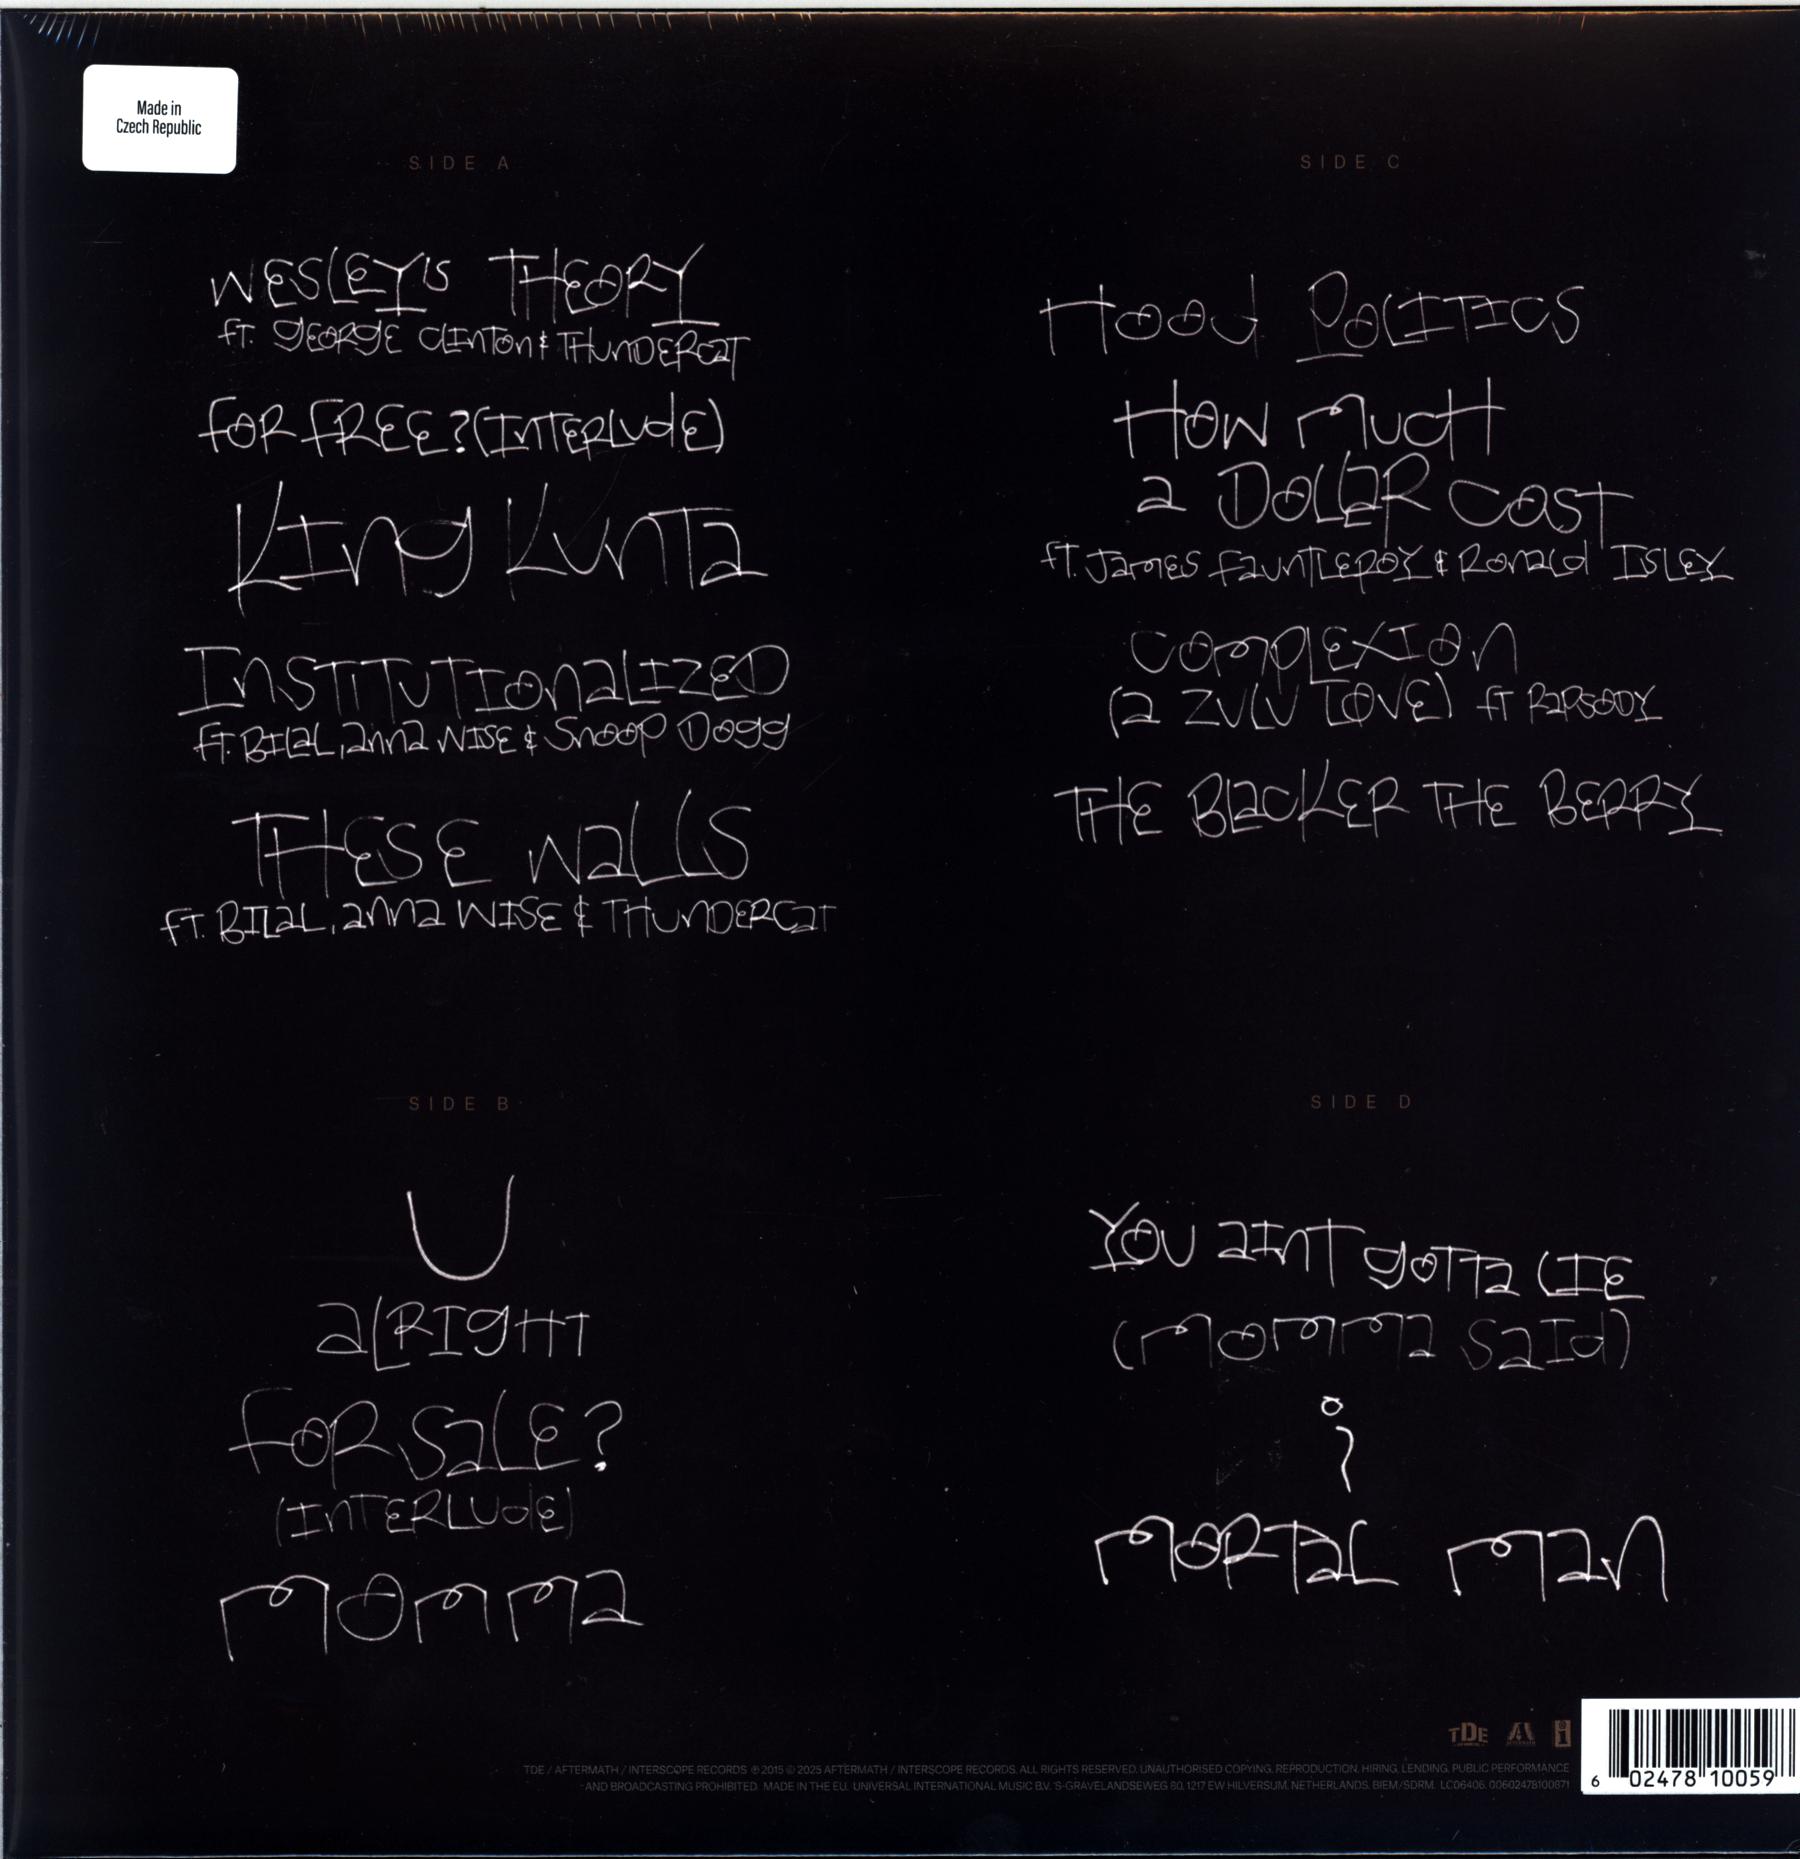 Made in
Czech Republic
SIDE A
WESLEY'S THEORY
FT. GEORGE CLINTON & THUNDERCAT
FOR FREE? (INTERLUDE)
KING KUNTA
INSTITUTIONALIZED
FT. BILAL, ANNA WISE & SNOOP DOGG
THESE WALLS
FT. BILAL, ANNA WISE & THUNDERCAT
SIDE B
U
ALRIGHT
FOR SALE?
(INTERLUDE)
MOMMA
SIDE C
HOOD POLITICS
HOW MUCH
A DOLLAR COST
FT. JAMES FAUNTLEROY & RONALD ISLEY
COMPLEXION
(A ZULU LOVE) FT RAPSODY
THE BLACKER THE BERRY
SIDE D
YOU AINT GOTTA LIE
(MOMMA SAID)
i
MORTAL MAN
TDE
AFTERMATH
TDE / AFTERMATH / INTERSCOPE RECORDS ℗ 2015 © 2025 AFTERMATH / INTERSCOPE RECORDS. ALL RIGHTS RESERVED. UNAUTHORISED COPYING, REPRODUCTION, HIRING, LENDING, PUBLIC PERFORMANCE
AND BROADCASTING PROHIBITED. MADE IN THE EU. UNIVERSAL INTERNATIONAL MUSIC B.V. 'S-GRAVELANDSEWEG 80, 1217 EW HILVERSUM, NETHERLANDS. BIEM/SDRM. LC06406. 00602478100871
6 02478 10059